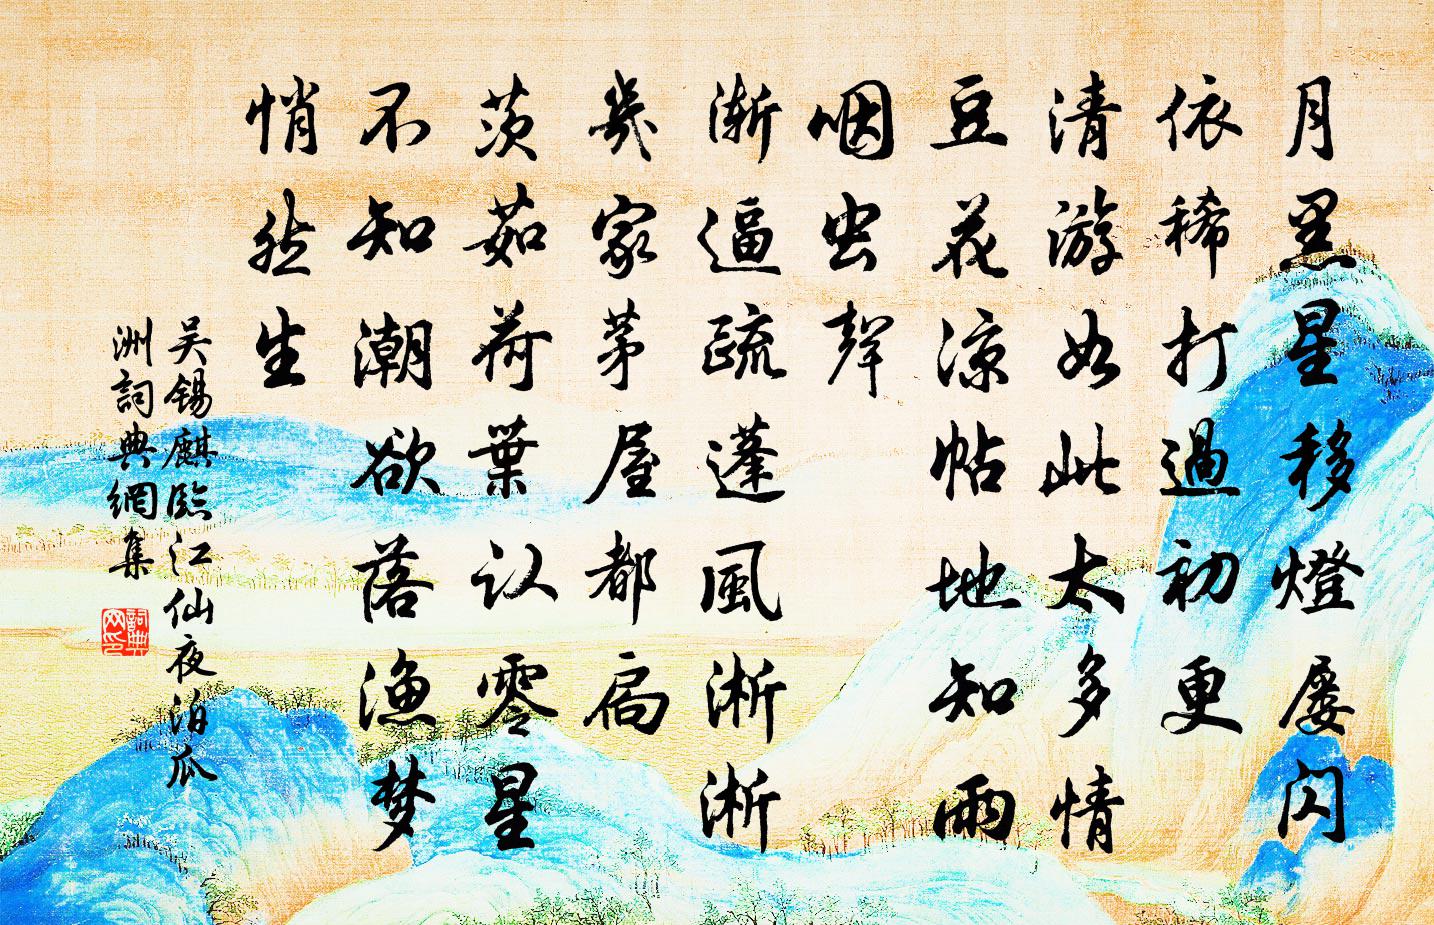 月黑星移燈屢閃
依稀打過初更
清游如此太多情
豆花涼帖地知雨
咽虫聲
渐逼疏蓬風淅淅
幾家茅屋都扃
茨茹荷葉认零星
不知潮欲落渔梦
悄然生
吴錫麒臨江仙夜泊瓜
洲詞典網集
詞典网印